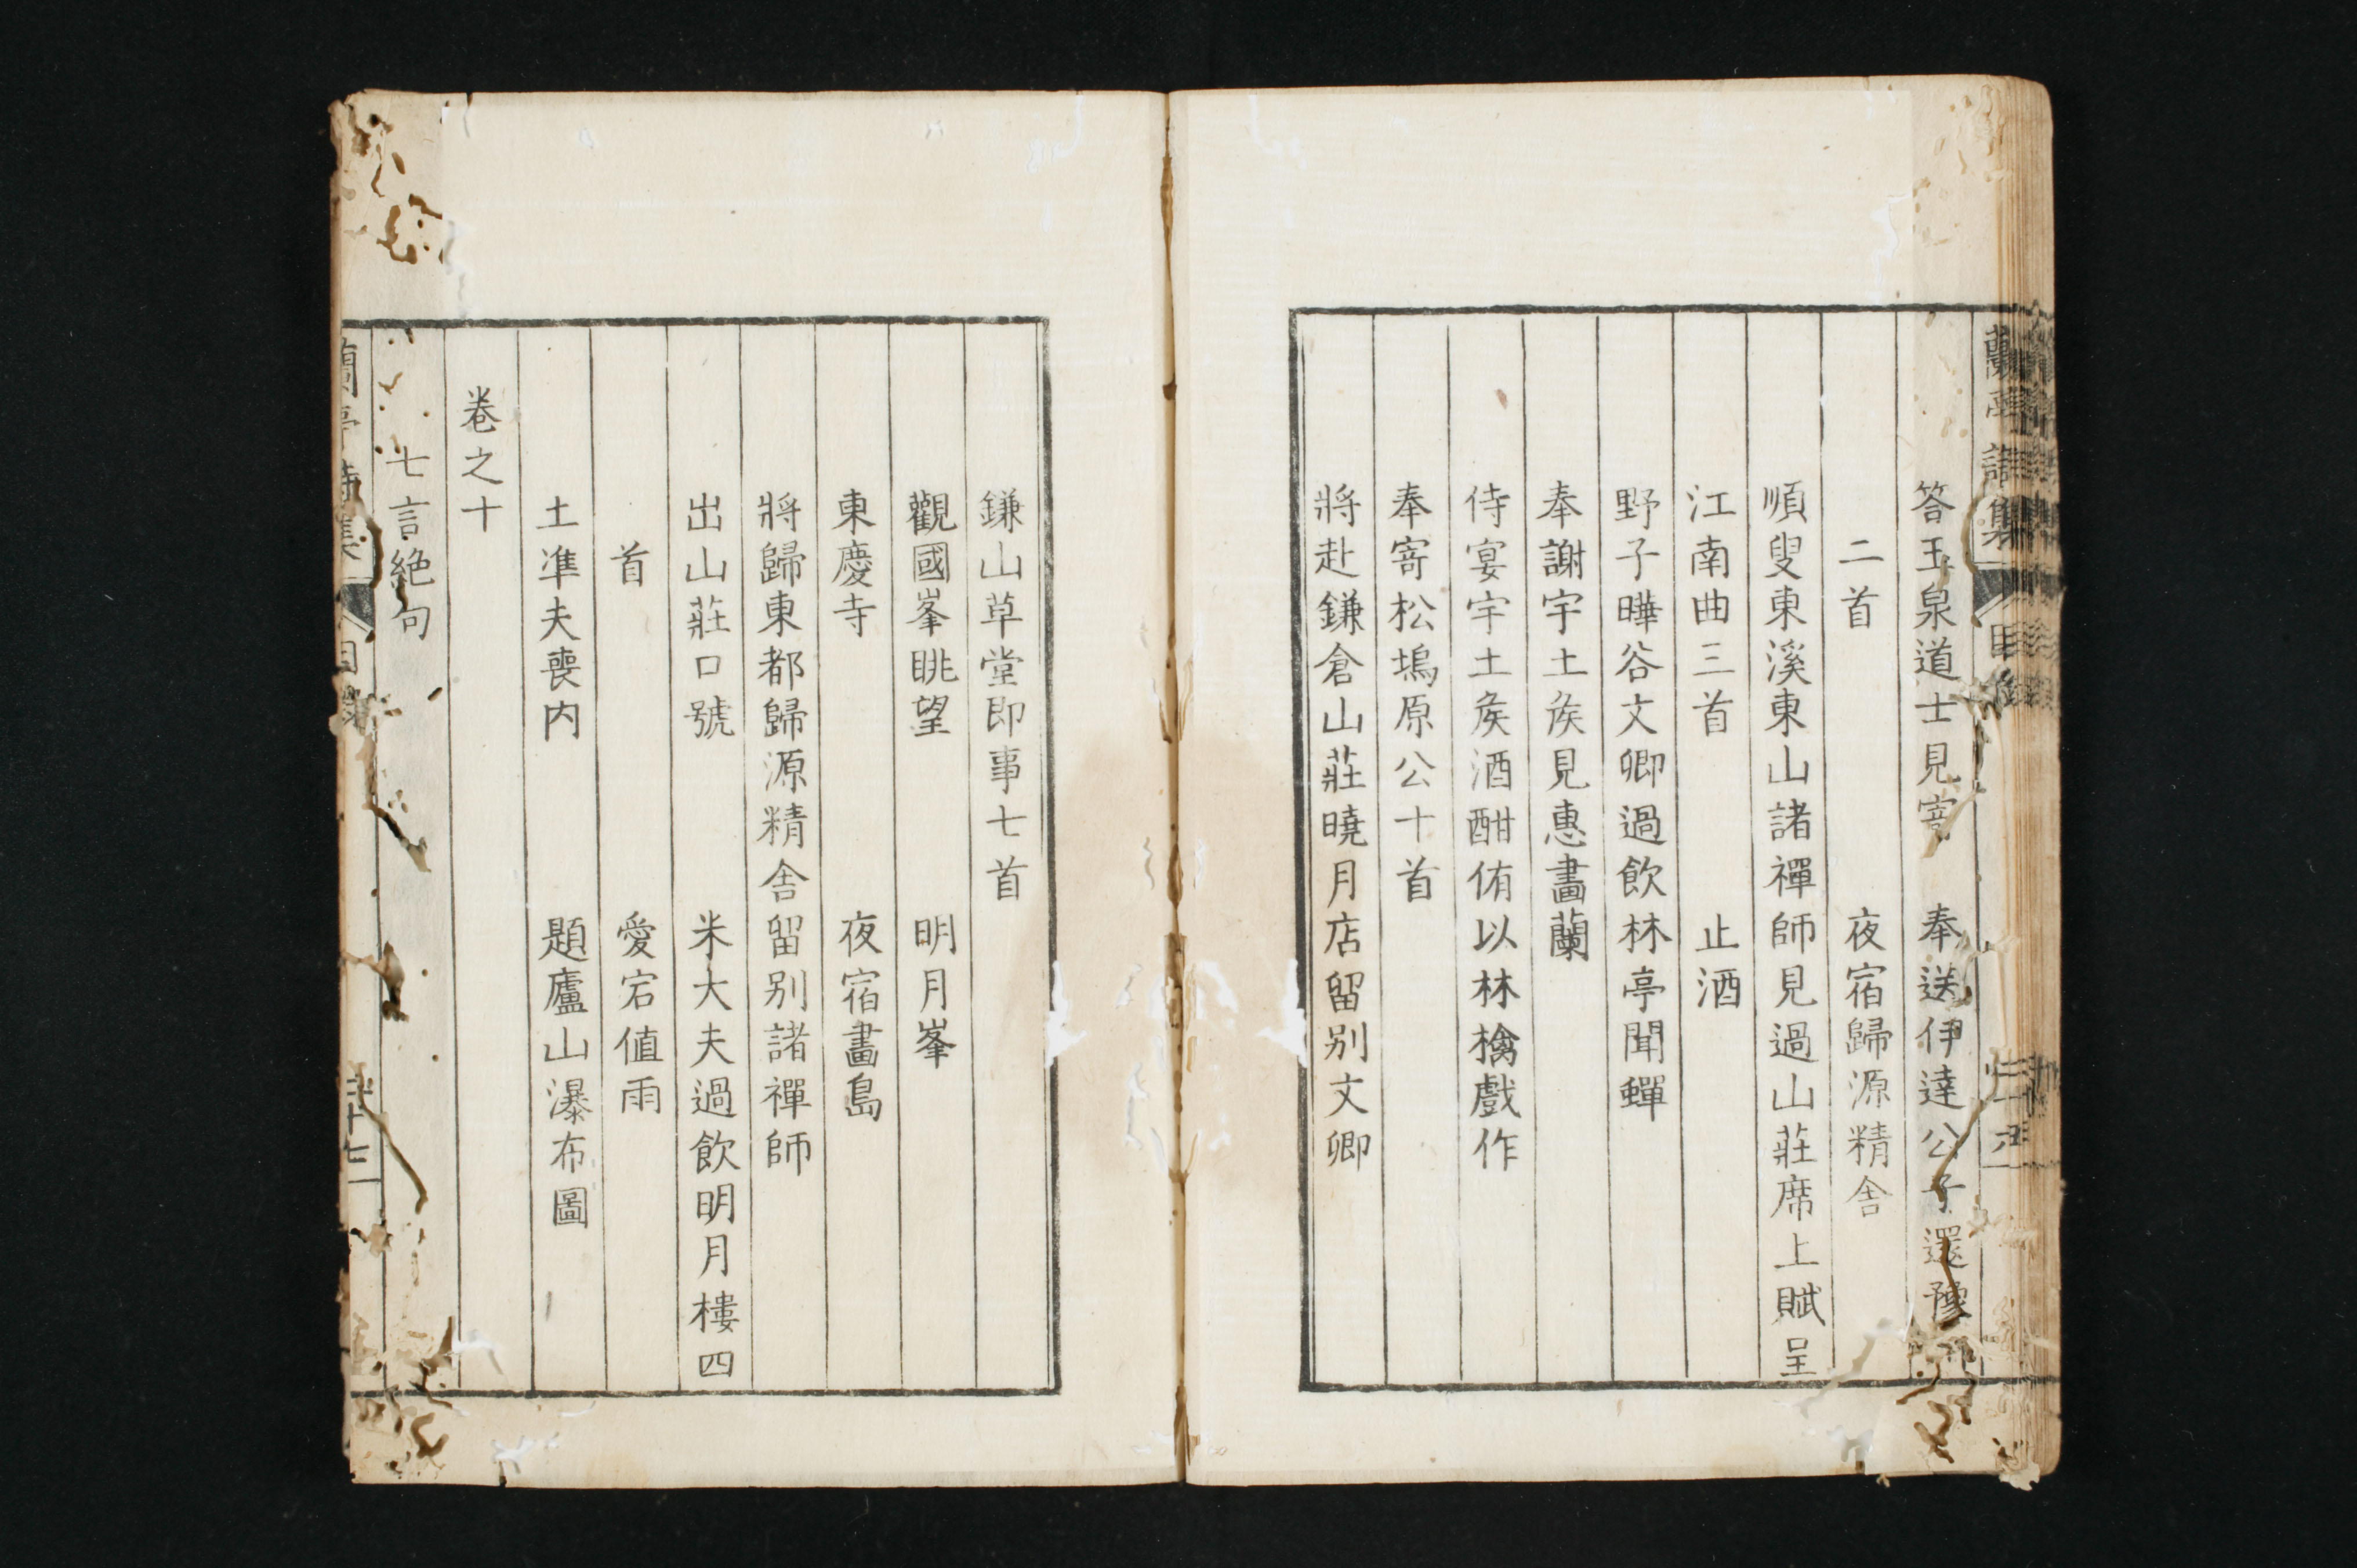 答玉泉道士見寄　奉送伊達公子還豫
二首　夜宿歸源精舍
順叟東溪東山諸禪師見過山莊席上賦呈
江南曲三首　止酒
野子曄谷文卿過飲林亭聞蟬
奉謝宇土矦見惠畫蘭
侍宴宇土矦酒酣侑以林檎戲作
奉寄松塢原公十首
將赴鎌倉山莊曉月店留别文卿
鎌山草堂即事七首
觀國峯眺望　明月峯
東慶寺　夜宿畫島
將歸東都歸源精舍留别諸禪師
出山莊口號　米大夫過飲明月樓四
首　愛宕值雨
土準夫喪内　題廬山瀑布圖
卷之十
七言絶句